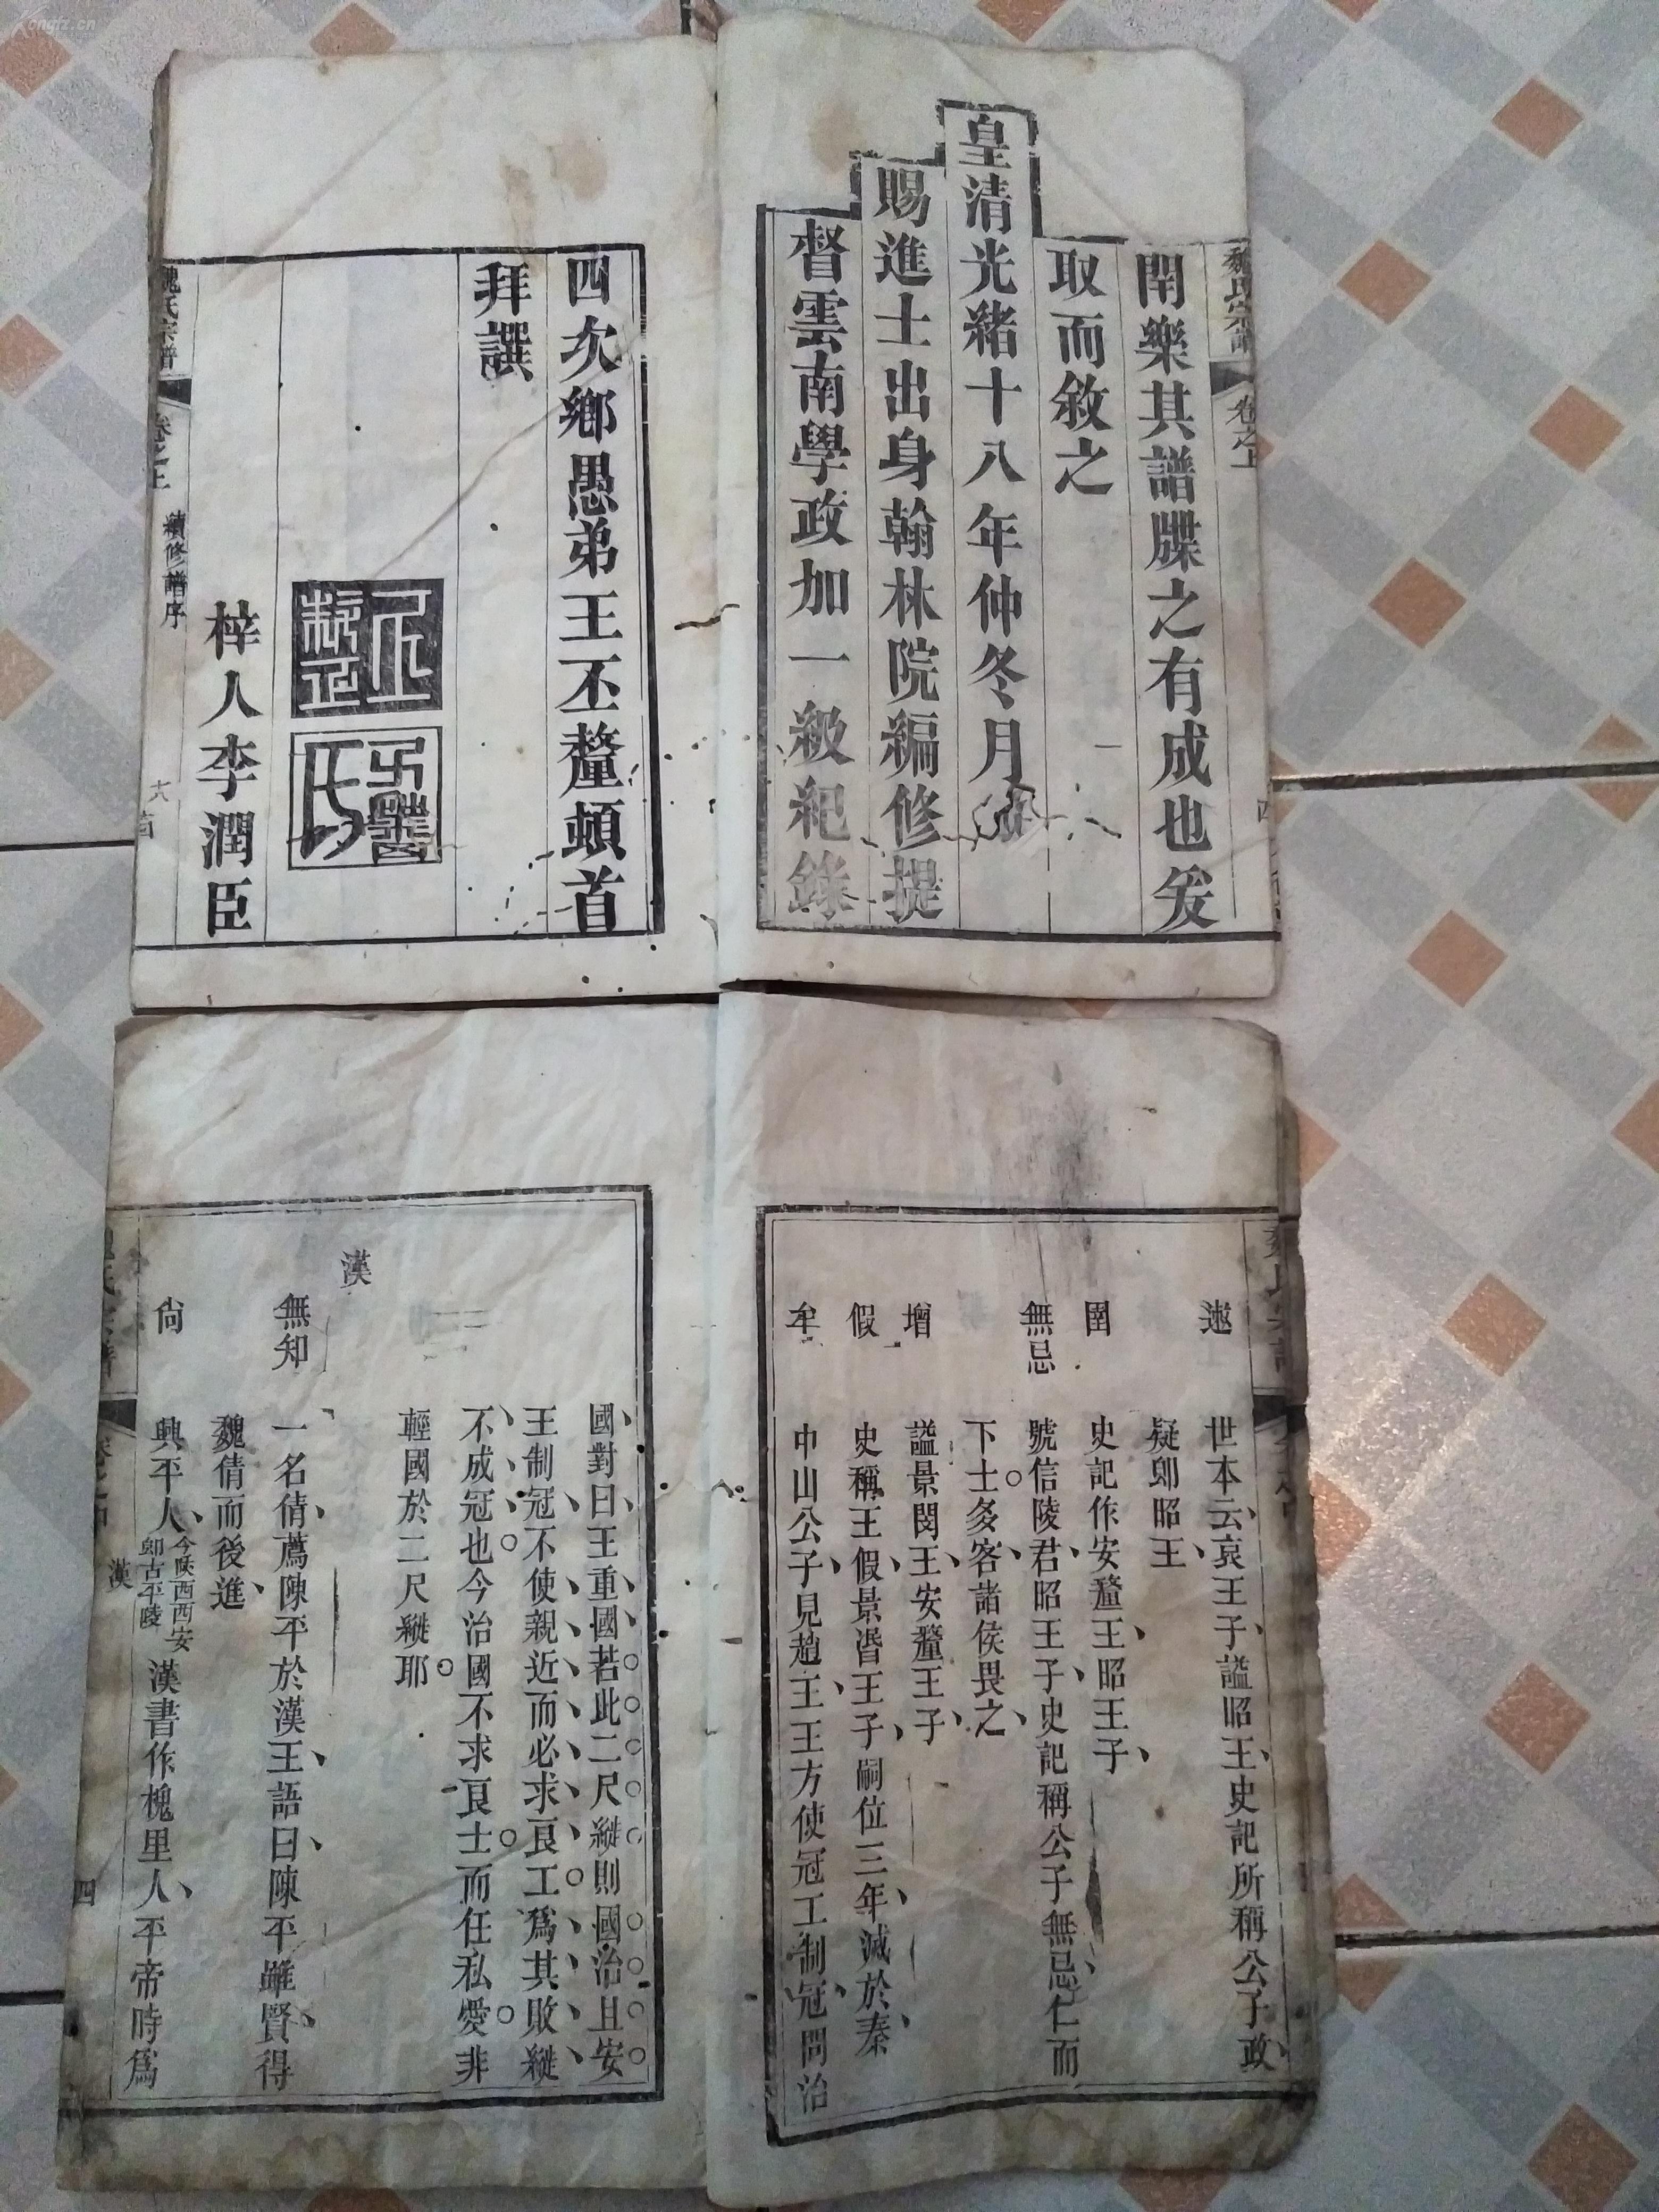 Kongfz.cn
魏氏宗譜 卷之上
閈樂其譜牒之有成也爰
取而敘之
皇清光緒十八年仲冬月
賜進士出身翰林院編修提
督雲南學政加一級紀錄
四次鄉愚弟王丕釐頓首
拜譔
梓人李潤臣
魏氏宗譜 卷之上 續修譜序
遫 世本云哀王子謚昭王史記所稱公子政
疑卽昭王
圉 史記作安釐王昭王子
無忌 號信陵君昭王子史記稱公子無忌仁而
下士多客諸侯畏之
增 謚景閔王安釐王子
假 史稱王假景湣王子嗣位三年滅於秦
牟 中山公子見趙王王方使冠工制冠問治
國對曰王重國若此二尺縰則國治且安
王制冠不使親近而必求良工爲其敗縰
不成冠也今治國不求良士而任私愛非
輕國於二尺縰耶
漢
無知 一名倩薦陳平於漢王語曰陳平雖賢得
魏倩而後進
尙 興平人今陝西西安卽古平陵漢書作槐里人平帝時爲
漢 四